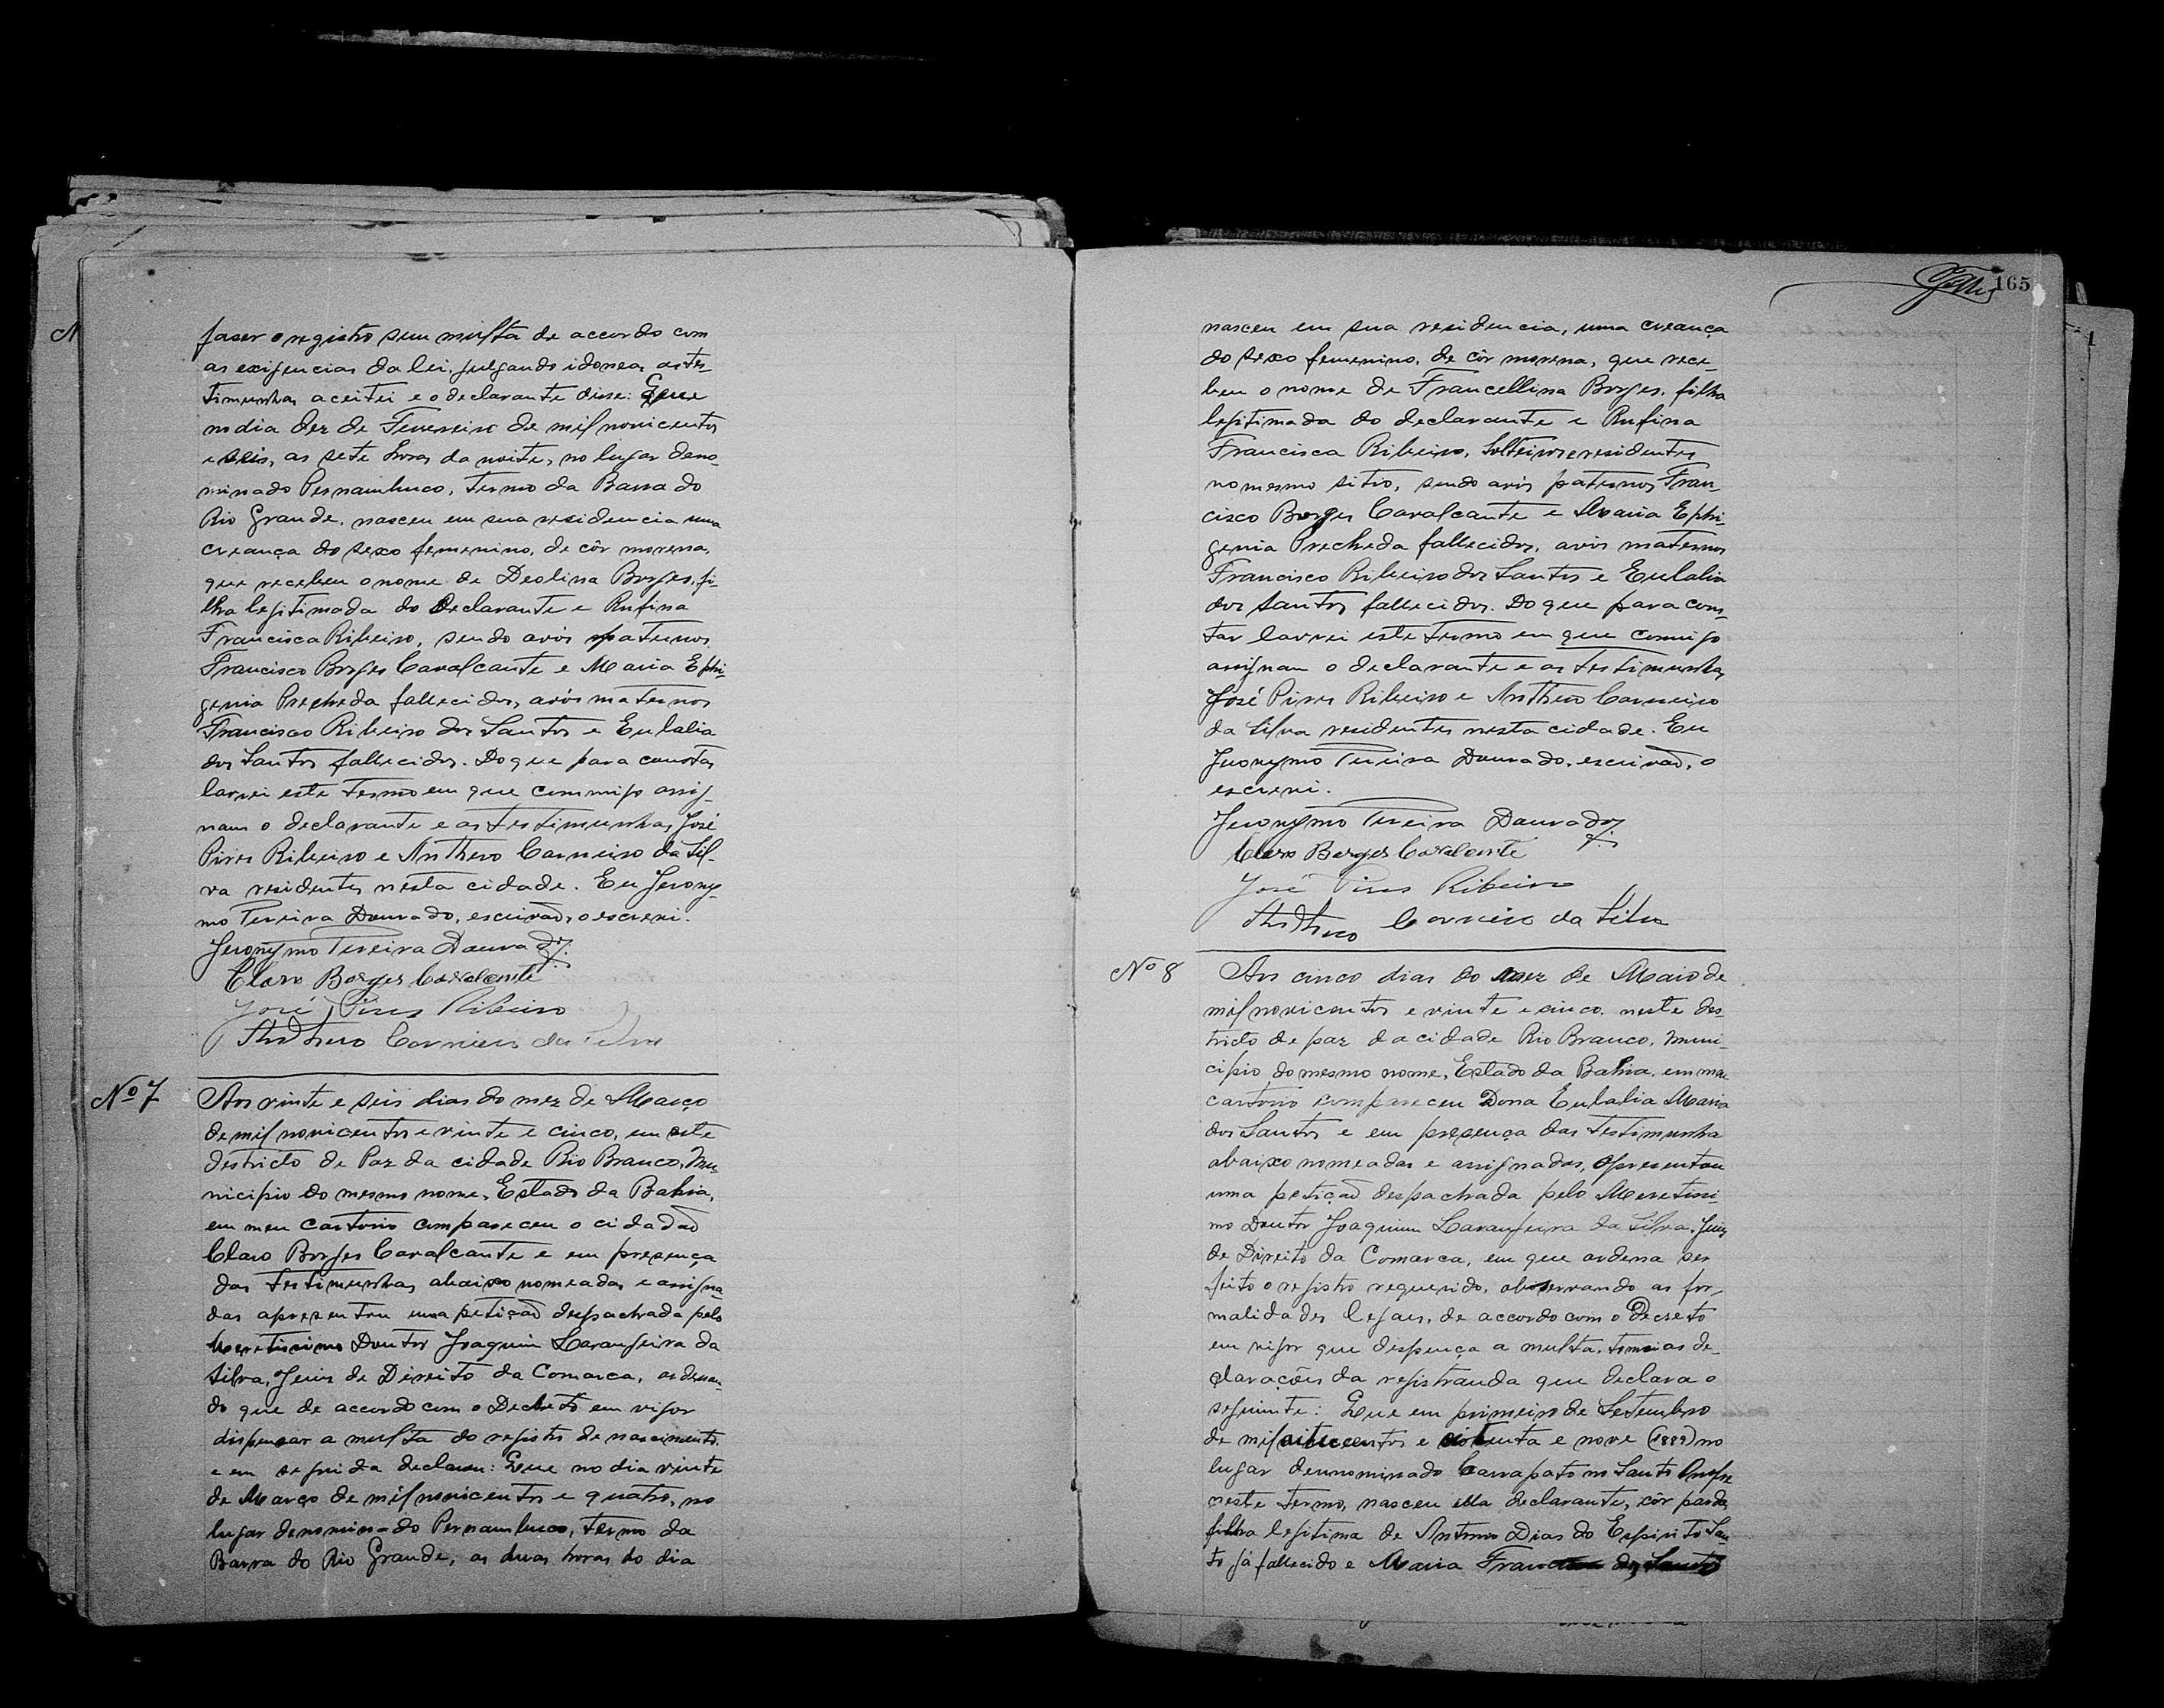 faser o registro sem multa de accordo com
as exigencias da lei, julgando idoneas as tes-
timunhas aceitei e o declarante disse: Que
no dia dez de Fevereiro de mil novicentos
e seis, as sete horas da noite, no lugar deno-
minado Pernambuco, termo da Barra do
Rio Grande, nasceu em sua residencia uma
creança do sexo femenino, de côr morena,
que recebeu o nome de Deolina Borges, fi-
lha legitimada do declarante e Rufina
Francisca Ribeiro, sendo avós paternos
Francisco Borges Cavalcante e Maria Ephi-
genia Precheda fallecidos, avós maternos
Francisco Ribeiro dos Santos e Eulalia
dos Santos fallecidos. Do que para constar
lavrei este termo em que commigo assig-
nam o declarante e as testimunhas José
Pires Ribeiro e Anthero Carneiro da Sil-
va residentes nesta cidade. Eu Jerony-
mo Pereira Dourado, escrivão, o escrevi.
Jeronymo Pereira Dourado
Claro Borges Cavalcante
José Pires Ribeiro
Anthero Carneiro da Silva
Nº 7 Aos vinte e seis dias do mez de Março
de mil novicentos e vinte e cinco, em este
destricto de Paz da cidade Rio Branco, Mu-
nicipio do mesmo nome, Estado da Bahia,
em meu cartorio compareceu o cidadão
Claro Borges Cavalcante e em presença
das testimunhas abaixo nomeadas e assigna-
das apresentou uma petição despachada pelo
Meretissimo Doutor Joaquim Laranjeira da
Silva, Juiz de Direito da Comarca, ordenan-
do que de accordo com o Decreto em vigor
dispensar a multa do registro de nascimento.
e em seguida declarou: Que no dia vinte
de Março de mil novicentos e quatro, no
lugar denominado Pernambuco, termo da
Barra do Rio Grande, as duas horas do dia
165
nasceu em sua residencia, uma creança
do sexo femenino, de côr morena, que rece-
beu o nome de Francellina Borges, filha
legitimada do declarante e Rufina
Francisca Ribeiro, solteiros e residentes
no mesmo sitio, sendo avós paternos Fran-
cisco Borges Cavalcante e Maria Ephi-
genia Precheda fallecidos, avós maternos
Francisco Ribeiro dos Santos e Eulalia
dos Santos fallecidos. Do que para cons-
tar lavrei este termo em que commigo
assignam o declarante e as testimunhas
José Pires Ribeiro e Anthero Carneiro
da Silva residentes nesta cidade. Eu
Jeronymo Pereira Dourado, escrivão, o
escrevi.
Jeronymo Pereira Dourado
Claro Borges Cavalcante
José Pires Ribeiro
Anthero Carneiro da Silva
Nº 8 Aos cinco dias do mez de Maio de
mil novicentos e vinte e cinco, neste des-
tricto de paz da cidade Rio Branco, Muni-
cipio do mesmo nome, Estado da Bahia, em meu
cartorio compareceu Dona Eulalia Maria
dos Santos e em presença das testimunha
abaixo nomeadas e assignadas, apresentou
uma petição despachada pelo Meretissi-
mo Doutor Joaquim Laranjeira da Silva, Juiz
de Direito da Comarca, em que ordena ser
feito o registro requerido, observando as for-
malidades legaes, de accordo com o Decreto
em vigor que dispença a multa, tomei as de-
clarações da registranda que declara o
seguinte: Que em primeiro de Setembro
de mil oitocentos e oitenta e nove (1889) no
lugar dennominado Carrapato no Santo
neste termo, nasceu ella declarante, côr parda,
filha legitima de Antonio Dias do Espirito San-
to já fallecido e Maria